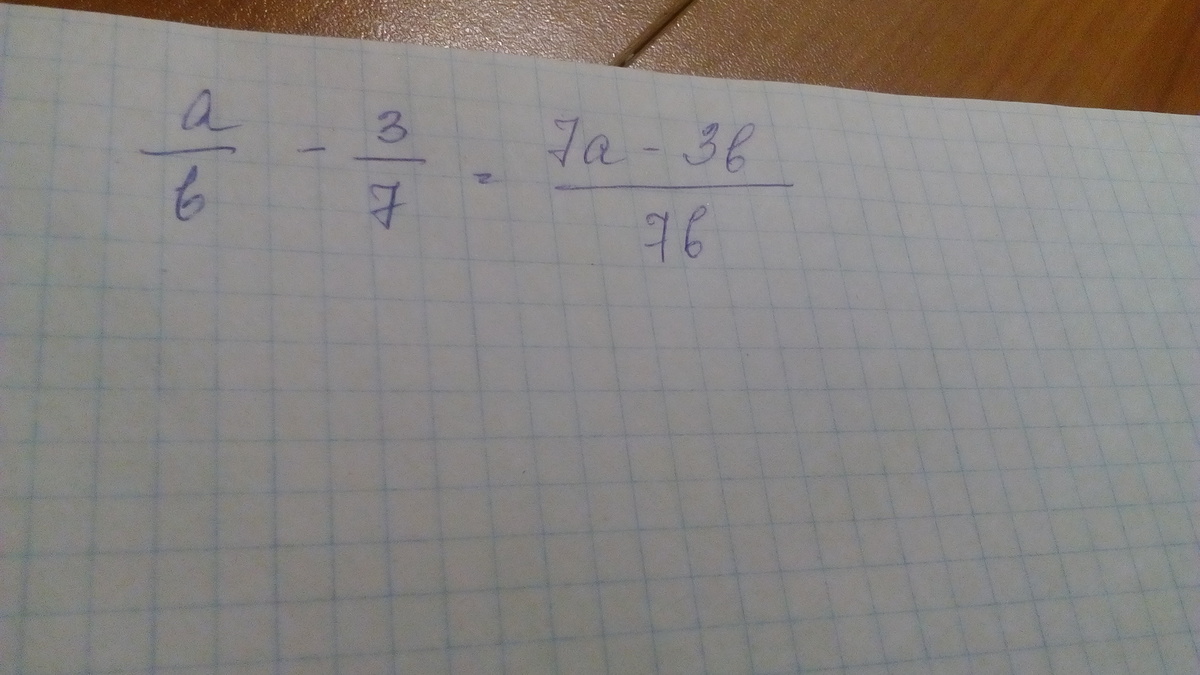 a/b - 3/7 = 7a - 3b/7b